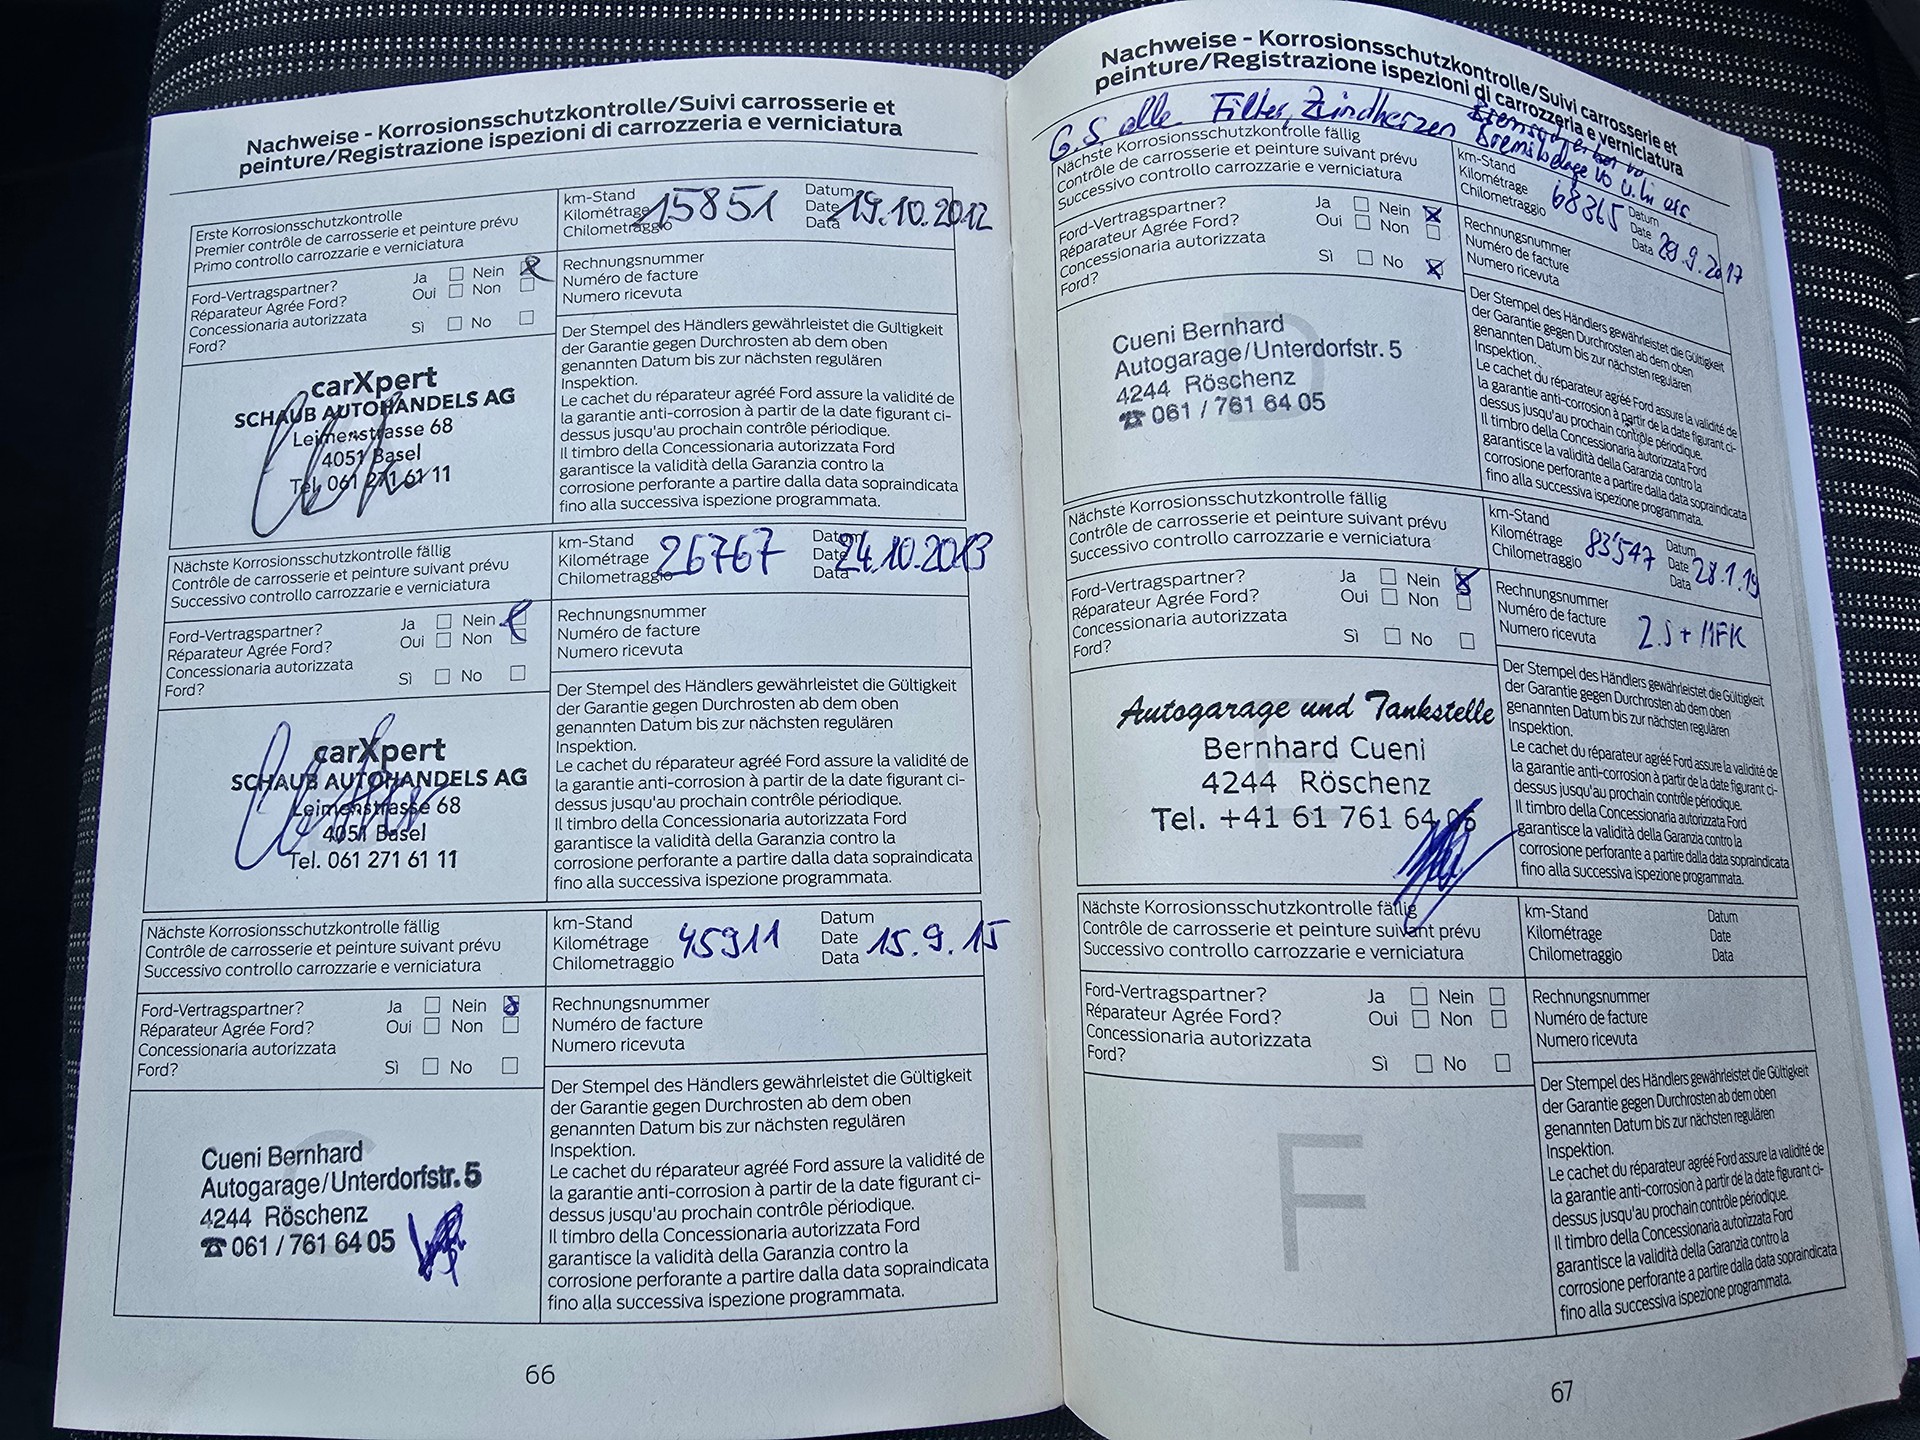 Nachweise - Korrosionsschutzkontrolle/Suivi carrosserie et
peinture/Registrazione ispezioni di carrozzeria e verniciatura
Erste Korrosionsschutzkontrolle
Premier contrôle de carrosserie et peinture prévu
Primo controllo carrozzarie e verniciatura
km-Stand
Kilométrage 15851
Chilometraggio
Datum
Date 19.10.2012
Data
Ford-Vertragspartner?
Réparateur Agrée Ford?
Concessionaria autorizzata
Ford?
Ja Nein
Oui Non
Sì No
Rechnungsnummer
Numéro de facture
Numero ricevuta
carXpert
SCHAUB AUTOHANDELS AG
Leimenstrasse 68
4051 Basel
Tel. 061 271 61 11
Der Stempel des Händlers gewährleistet die Gültigkeit
der Garantie gegen Durchrosten ab dem oben
genannten Datum bis zur nächsten regulären
Inspektion.
Le cachet du réparateur agréé Ford assure la validité de
la garantie anti-corrosion à partir de la date figurant ci-
dessus jusqu'au prochain contrôle périodique.
Il timbro della Concessionaria autorizzata Ford
garantisce la validità della Garanzia contro la
corrosione perforante a partire dalla data sopraindicata
fino alla successiva ispezione programmata.
Nächste Korrosionsschutzkontrolle fällig
Contrôle de carrosserie et peinture suivant prévu
Successivo controllo carrozzarie e verniciatura
km-Stand
Kilométrage 26767
Chilometraggio
Datum
Date 24.10.2013
Data
Ford-Vertragspartner?
Réparateur Agrée Ford?
Concessionaria autorizzata
Ford?
Ja Nein
Oui Non
Sì No
Rechnungsnummer
Numéro de facture
Numero ricevuta
carXpert
SCHAUB AUTOHANDELS AG
Leimenstrasse 68
4051 Basel
Tel. 061 271 61 11
Der Stempel des Händlers gewährleistet die Gültigkeit
der Garantie gegen Durchrosten ab dem oben
genannten Datum bis zur nächsten regulären
Inspektion.
Le cachet du réparateur agréé Ford assure la validité de
la garantie anti-corrosion à partir de la date figurant ci-
dessus jusqu'au prochain contrôle périodique.
Il timbro della Concessionaria autorizzata Ford
garantisce la validità della Garanzia contro la
corrosione perforante a partire dalla data sopraindicata
fino alla successiva ispezione programmata.
Nächste Korrosionsschutzkontrolle fällig
Contrôle de carrosserie et peinture suivant prévu
Successivo controllo carrozzarie e verniciatura
km-Stand
Kilométrage 45911
Chilometraggio
Datum
Date 15.9.15
Data
Ford-Vertragspartner?
Réparateur Agrée Ford?
Concessionaria autorizzata
Ford?
Ja Nein
Oui Non
Sì No
Rechnungsnummer
Numéro de facture
Numero ricevuta
Cueni Bernhard
Autogarage/Unterdorfstr. 5
4244 Röschenz
☎ 061 / 761 64 05
Der Stempel des Händlers gewährleistet die Gültigkeit
der Garantie gegen Durchrosten ab dem oben
genannten Datum bis zur nächsten regulären
Inspektion.
Le cachet du réparateur agréé Ford assure la validité de
la garantie anti-corrosion à partir de la date figurant ci-
dessus jusqu'au prochain contrôle périodique.
Il timbro della Concessionaria autorizzata Ford
garantisce la validità della Garanzia contro la
corrosione perforante a partire dalla data sopraindicata
fino alla successiva ispezione programmata.
66
Nachweise - Korrosionsschutzkontrolle/Suivi carrosserie et
peinture/Registrazione ispezioni di carrozzeria e verniciatura
G.S alle Filter, Zündkerzen
Bremsbeläge vo u. hi ers
Nächste Korrosionsschutzkontrolle fällig
Contrôle de carrosserie et peinture suivant prévu
Successivo controllo carrozzarie e verniciatura
km-Stand
Kilométrage 68365
Chilometraggio
Datum
Date 29.9.2017
Data
Ford-Vertragspartner?
Réparateur Agrée Ford?
Concessionaria autorizzata
Ford?
Ja Nein
Oui Non
Sì No
Rechnungsnummer
Numéro de facture
Numero ricevuta
D
Cueni Bernhard
Autogarage/Unterdorfstr. 5
4244 Röschenz
☎ 061 / 761 64 05
Der Stempel des Händlers gewährleistet die Gültigkeit
der Garantie gegen Durchrosten ab dem oben
genannten Datum bis zur nächsten regulären
Inspektion.
Le cachet du réparateur agréé Ford assure la validité de
la garantie anti-corrosion à partir de la date figurant ci-
dessus jusqu'au prochain contrôle périodique.
Il timbro della Concessionaria autorizzata Ford
garantisce la validità della Garanzia contro la
corrosione perforante a partire dalla data sopraindicata
fino alla successiva ispezione programmata.
Nächste Korrosionsschutzkontrolle fällig
Contrôle de carrosserie et peinture suivant prévu
Successivo controllo carrozzarie e verniciatura
km-Stand
Kilométrage 83'547
Chilometraggio
Datum
Date 28.1.19
Data
Ford-Vertragspartner?
Réparateur Agrée Ford?
Concessionaria autorizzata
Ford?
Ja Nein
Oui Non
Sì No
Rechnungsnummer
Numéro de facture
Numero ricevuta 2.S + MFK
Autogarage und Tankstelle
Bernhard Cueni
4244 Röschenz
Tel. +41 61 761 64 05
Der Stempel des Händlers gewährleistet die Gültigkeit
der Garantie gegen Durchrosten ab dem oben
genannten Datum bis zur nächsten regulären
Inspektion.
Le cachet du réparateur agréé Ford assure la validité de
la garantie anti-corrosion à partir de la date figurant ci-
dessus jusqu'au prochain contrôle périodique.
Il timbro della Concessionaria autorizzata Ford
garantisce la validità della Garanzia contro la
corrosione perforante a partire dalla data sopraindicata
fino alla successiva ispezione programmata.
Nächste Korrosionsschutzkontrolle fällig
Contrôle de carrosserie et peinture suivant prévu
Successivo controllo carrozzarie e verniciatura
km-Stand
Kilométrage
Chilometraggio
Datum
Date
Data
Ford-Vertragspartner?
Réparateur Agrée Ford?
Concessionaria autorizzata
Ford?
Ja Nein
Oui Non
Sì No
Rechnungsnummer
Numéro de facture
Numero ricevuta
F
Der Stempel des Händlers gewährleistet die Gültigkeit
der Garantie gegen Durchrosten ab dem oben
genannten Datum bis zur nächsten regulären
Inspektion.
Le cachet du réparateur agréé Ford assure la validité de
la garantie anti-corrosion à partir de la date figurant ci-
dessus jusqu'au prochain contrôle périodique.
Il timbro della Concessionaria autorizzata Ford
garantisce la validità della Garanzia contro la
corrosione perforante a partire dalla data sopraindicata
fino alla successiva ispezione programmata.
67